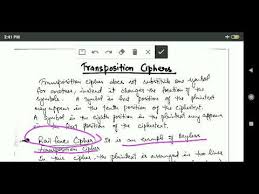 2:41 PM
Transposition Ciphers
Transposition cipher does not substitute one symbol
for another, instead it changes the position of the
symbols. A symbol in first position of the plaintext
may appear in the tenth position of the ciphertext.
A symbol in the eighth position in the plaintext may appear
in the first position of the ciphertext.
Rail fence Cipher It is an example of keyless
transposition cipher
In this cipher the plaintext is arranged in two lines